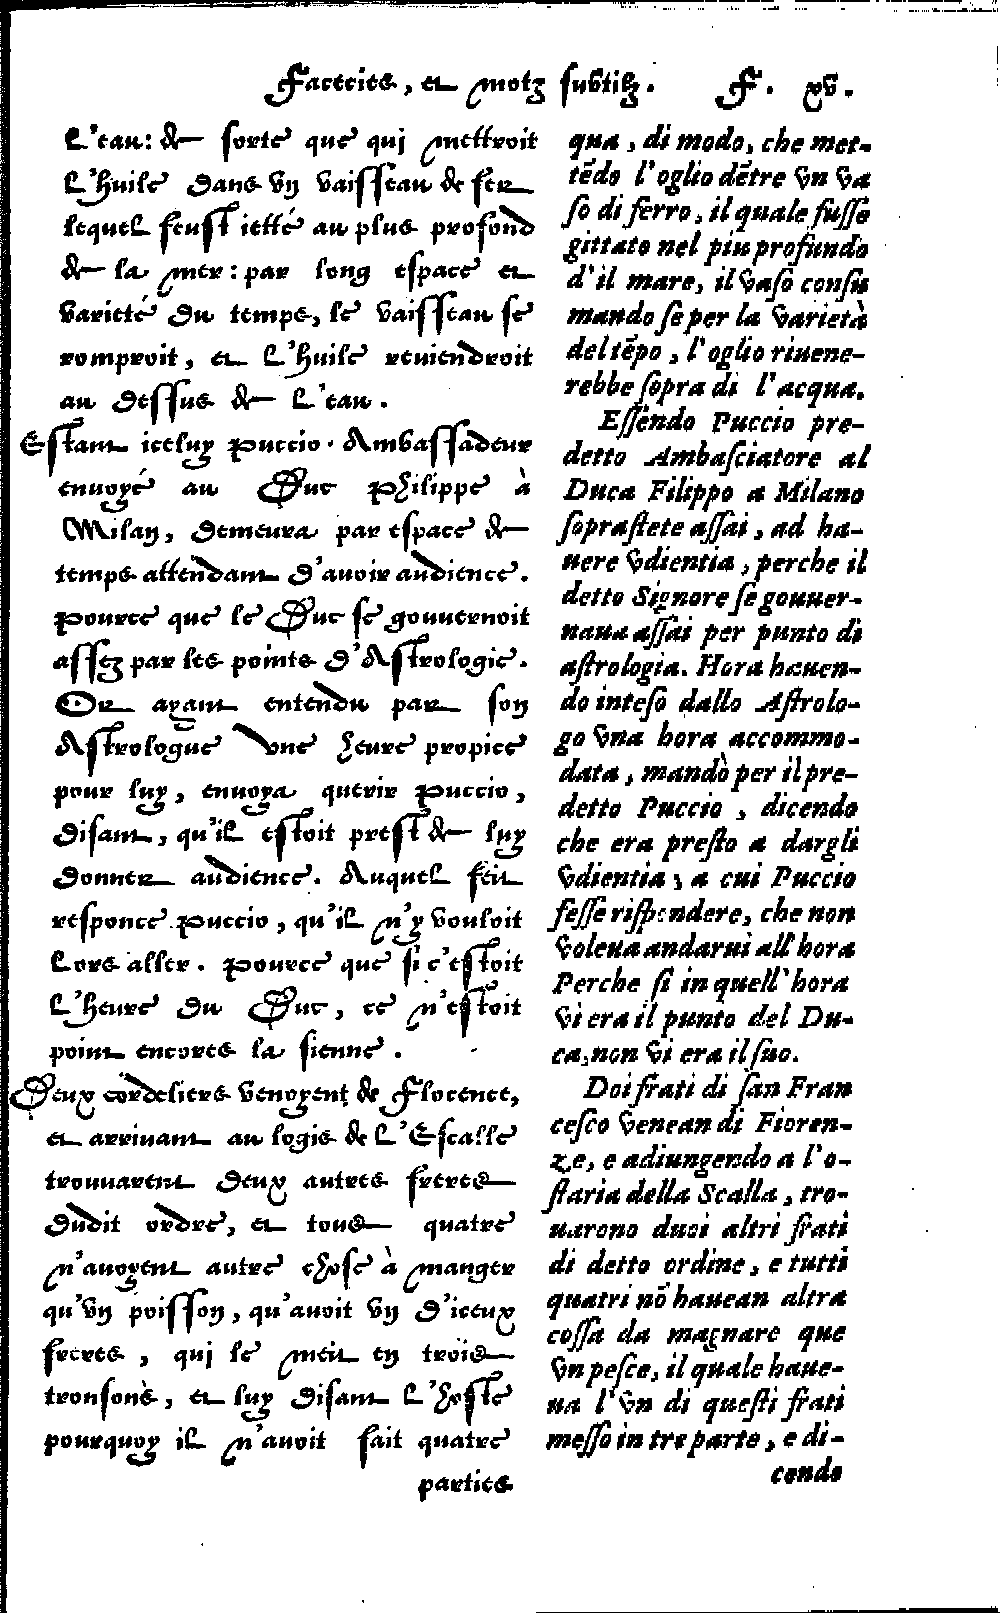 Facecies, et motz subtilz. F. xv.
l'eau: de sorte que qui mettroit
l'huile dans vn vaisseau de fer
lequel feust ietté au plus profond
de la mer: par long espace et
varieté du temps, le vaisseau se
romproit, et l'huile reuiendroit
au dessus de l'eau.
Estant iceluy Puccio Ambassadeur
enuoyé au Duc Philippe à
Milan, demeura par espace de
temps attendant d'auoir audience.
Pource que le Duc se gouuernoit
assez par les points d'Astrologie.
Or ayant entendu par son
Astrologue vne heure propice
pour luy, enuoya querir Puccio,
disant, qu'il estoit prest de luy
donner audience. Auquel feit
responce Puccio, qu'il n'y vouloit
lors aller. Pource que si c'estoit
l'heure du Duc, ce n'estoit
point encores la sienne.
Deux cordeliers venoyent de Florence,
et arriuant au logis de l'Escalle
trouuarent deux autres freres
dudit ordre, et tous quatre
n'auoyent autre chose à manger
qu'vn poisson, qu'auoit vn d'iceux
freres, qui le meit en troïs
tronsons, et luy disant l'hoste
pourquoy il n'auoit fait quatre
parties
qua, di modo, che met-
tẽdo l'oglio dẽtre vn va
so di ferro, il quale fusse
gittato nel piu profundo
d'il mare, il vaso consu
mando se per la varietà
del tẽpo, l'oglio riuene-
rebbe sopra di l'acqua.
Essendo Puccio pre-
detto Ambasciatore al
Duca Filippo a Milano
soprastete assai, ad ha-
uere vdientia, perche il
detto Signore se gouuer-
naua assai per punto di
astrologia. Hora hauen-
do inteso dallo Astrolo-
go vna hora accommo-
data, mandò per il pre-
detto Puccio, dicendo
che era presto a dargli
vdientia, a cui Puccio
fesse rispondere, che non
voleua andarui all'hora
Perche si in quell'hora
vi era il punto del Du-
ca, non vi era il suo.
Doi frati di san Fran
cesco venean di Fioren-
ze, e adiungendo a l'o-
staria della Scalla, tro-
uarono duoi altri frati
di detto ordine, e tutti
quatri nõ hauean altra
cossa da magnare que
vn pesce, il quale haue-
ua l'vn di questi frati
messo in tre parte, e di-
cendo